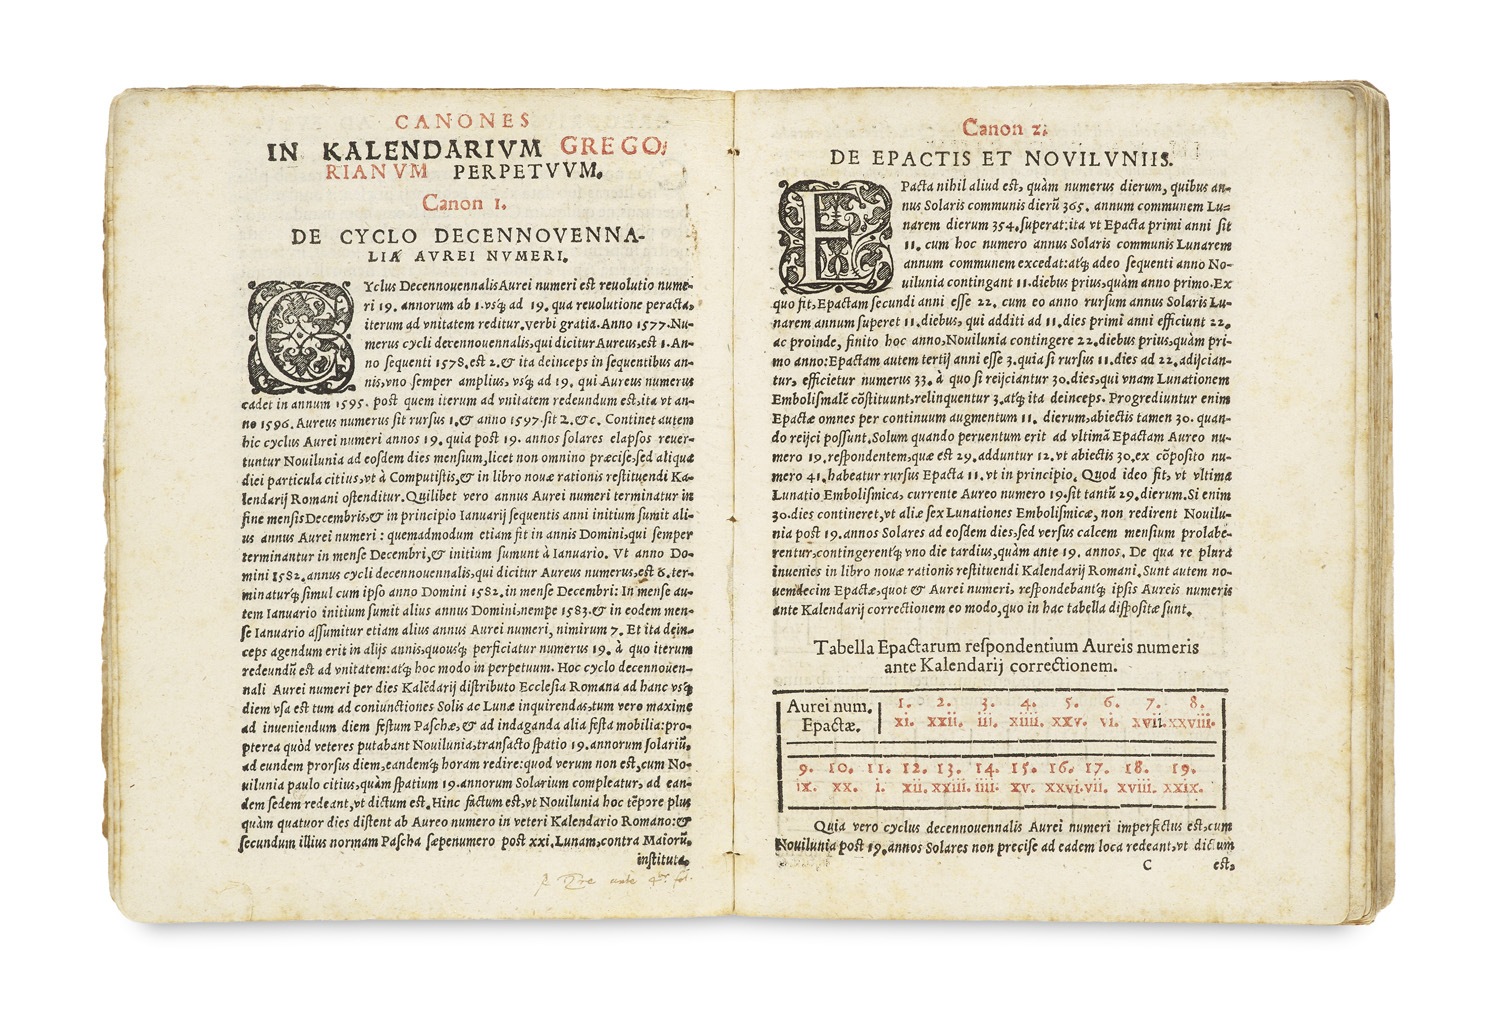 CANONES
IN KALENDARIVM GREGO,
RIANVM PERPETVVM.
Canon 1.
DE CYCLO DECENNOVENNA-
LIÆ AVREI NVMERI.
CYclus Decennouennalis Aurei numeri est reuolutio nume-
ri 19. annorum ab 1. vsq́ ad 19. qua reuolutione peracta,
iterum ad vnitatem reditur. verbi gratia. Anno 1577. Nu-
merus cycli decennouennalis, qui dicitur Aureus, est 1. An-
no sequenti 1578. est 2. & ita deinceps in sequentibus an-
nis, vno semper amplius, vsq́ ad 19. qui Aureus numerus
cadet in annum 1595. post quem iterum ad vnitatem redeundum est, ita vt an-
no 1596. Aureus numerus sit rursus 1. & anno 1597. sit 2. &c. Continet autem
hic cyclus Aurei numeri annos 19. quia post 19. annos solares elapsos reuer-
tuntur Nouilunia ad eosdem dies mensium, licet non omnino præcise, sed aliqua
diei particula citius, vt à Computistis, & in libro nouæ rationis restituendi Ka-
lendarij Romani ostenditur. Quilibet vero annus Aurei numeri terminatur in
fine mensis Decembris, & in principio Ianuarij sequentis anni initium sumit ali-
us annus Aurei numeri : quemadmodum etiam fit in annis Domini, qui semper
terminantur in mense Decembri, & initium sumunt à Ianuario. Vt anno Do-
mini 1582. annus cycli decennouennalis, qui dicitur Aureus numerus, est 6. ter-
minaturq́ simul cum ipso anno Domini 1582. in mense Decembri: In mense au-
tem Ianuario initium sumit alius annus Domini, nempe 1583. & in eodem men-
se Ianuario assumitur etiam alius annus Aurei numeri, nimirum 7. Et ita dein-
ceps agendum erit in alijs annis, quousq́ perficiatur numerus 19. à quo iterum
redeundũ est ad vnitatem: atq́ hoc modo in perpetuum. Hoc cyclo decennouen-
nali Aurei numeri per dies Kalẽdarij distributo Ecclesia Romana ad hanc vsq́
diem vsa est tum ad coniunctiones Solis ac Lunæ inquirendas, tum vero maxime
ad inueniendum diem festum Paschæ, & ad indaganda alia festa mobilia: pro-
pterea quòd veteres putabant Nouilunia, transacto spatio 19. annorum solariũ,
ad eundem prorsus diem, eandemq́ horam redire: quod verum non est, cum No-
uilunia paulo citius, quàm spatium 19. annorum Solarium compleatur, ad ean-
dem sedem redeant, vt dictum est. Hinc factum est, vt Nouilunia hoc tẽpore plus
quàm quatuor dies distent ab Aureo numero in veteri Kalendario Romano: &
secundum illius normam Pascha sæpenumero post xxi. Lunam, contra Maiorũ,
instituta,
Canon 2.
DE EPACTIS ET NOVILVNIIS.
EPacta nihil aliud est, quàm numerus dierum, quibus an-
nus Solaris communis dierũ 365. annum communem Lu-
narem dierum 354. superat: ita vt Epacta primi anni sit
11. cum hoc numero annus Solaris communis Lunarem
annum communem excedat: atq́ adeo sequenti anno No-
uilunia contingant 11. diebus prius, quàm anno primo. Ex
quo fit, Epactam secundi anni esse 22. cum eo anno rursum annus Solaris Lu-
narem annum superet 11. diebus, qui additi ad 11. dies primi anni efficiunt 22.
ac proinde, finito hoc anno, Nouilunia contingere 22. diebus prius, quàm pri-
mo anno: Epactam autem tertij anni esse 3. quia si rursus 11. dies ad 22. adijcian-
tur, efficietur numerus 33. à quo si reijciantur 30. dies, qui vnam Lunationem
Embolismalẽ cõstituunt, relinquentur 3. atq́ ita deinceps. Progrediuntur enim
Epactæ omnes per continuum augmentum 11. dierum, abiectis tamen 30. quan-
do reijci possunt. Solum quando peruentum erit ad vltimã Epactam Aureo nu-
mero 19. respondentem, quæ est 29. adduntur 12. vt abiectis 30. ex cõposito nu-
mero 41. habeatur rursus Epacta 11. vt in principio. Quod ideo fit, vt vltima
Lunatio Embolismica, currente Aureo numero 19. sit tantũ 29. dierum. Si enim
30. dies contineret, vt aliæ sex Lunationes Embolismicæ, non redirent Nouilu-
nia post 19. annos Solares ad eosdem dies, sed versus calcem mensium prolabe-
rentur, contingerentq́ vno die tardius, quàm ante 19. annos. De qua re plura
inuenies in libro nouæ rationis restituendi Kalendarij Romani. Sunt autem no-
uemdecim Epactæ, quot & Aurei numeri, respondebantq́ ipsis Aureis numeris
ante Kalendarij correctionem eo modo, quo in hac tabella dispositæ sunt.
Tabella Epactarum respondentium Aureis numeris
ante Kalendarij correctionem.
Aurei num. 1. 2. 3. 4. 5. 6. 7. 8.
Epactæ. xi. xxii. iii. xiiii. xxv. vi. xvii. xxviii.
9. 10. 11. 12. 13. 14. 15. 16. 17. 18. 19.
ix. xx. i. xii. xxiii. iiii. xv. xxvi. vii. xviii. xxix.
Quia vero cyclus decennouennalis Aurei numeri imperfectus est, cum
Nouilunia post 19. annos Solares non precise ad eadem loca redeant, vt dictum
C est,